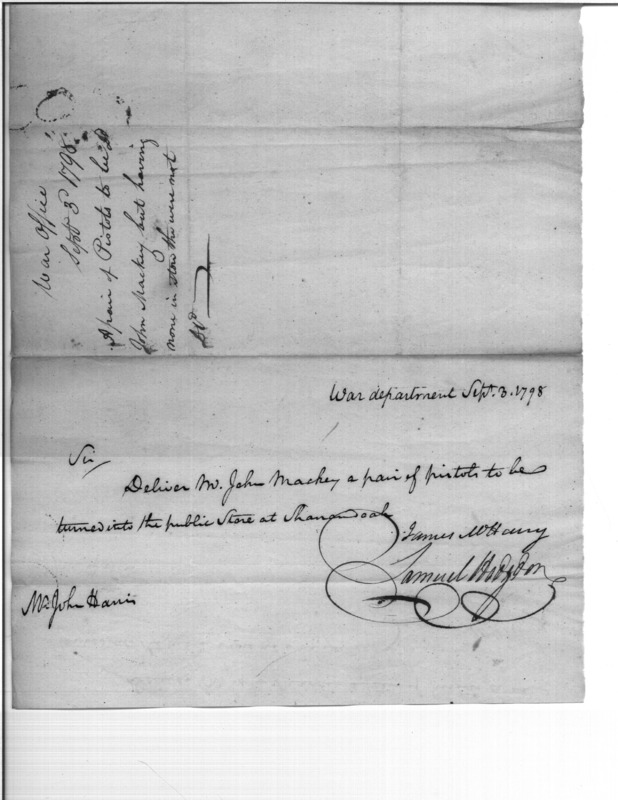 War Office
Sept 3d 1798
A pair of Pistols to be dd
John Mackey but having
none in store the were not
dd
War department Sept. 3. 1798
Sir
Deliver Mr. John Mackey a pair of pistols to be
turned into the public Store at Shanandoah
James McHenry
Samuel Hodgdon
Mr John Harris